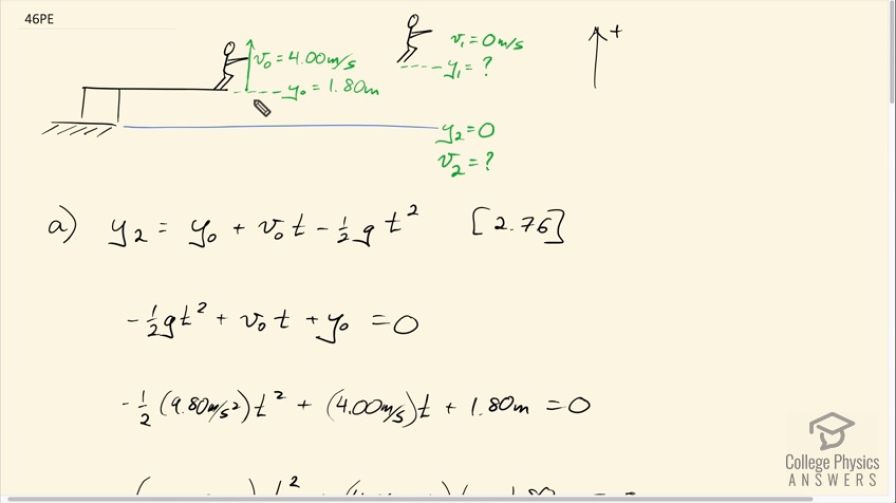 46PE
v₀ = 4.00 m/s
y₀ = 1.80m
v₁ = 0 m/s
y₁ = ?
+
y₂ = 0
v₂ = ?
a) y₂ = y₀ + v₀t - ½gt² [2.76]
-½gt² + v₀t + y₀ = 0
-½(9.80m/s²)t² + (4.00m/s)t + 1.80m = 0
College Physics
ANSWERS